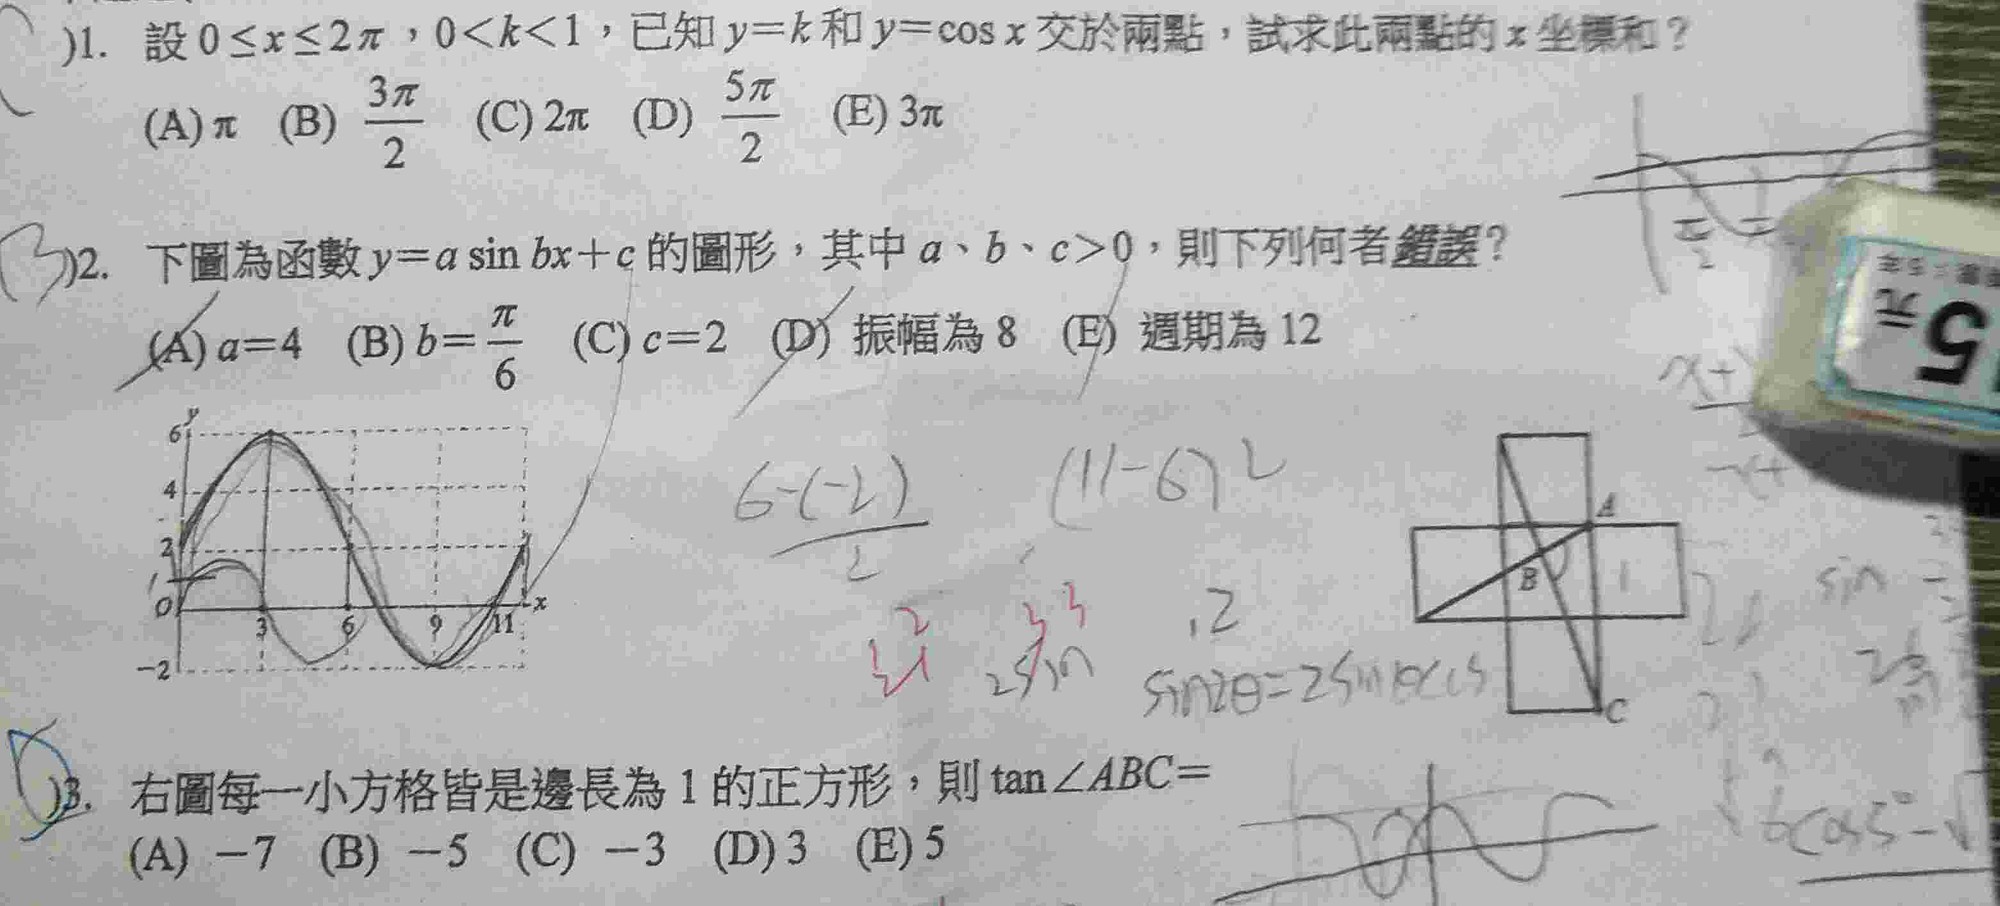 )1. 設 0≤x≤2π，0<k<1，已知 y=k 和 y=cos x 交於兩點，試求此兩點的 x 坐標和？
(A) π (B) 3π/2 (C) 2π (D) 5π/2 (E) 3π
)2. 下圖為函數 y=a sin bx+c 的圖形，其中 a、b、c>0，則下列何者錯誤？
(A) a=4 (B) b=π/6 (C) c=2 (D) 振幅為 8 (E) 週期為 12
y
6
4
2
1
O 3 6 9 11 x
-2
6-(-2)
2
(11-6)2
.2
2sin
sin2θ=2sinθcos
A
B
1
C
sin
)3. 右圖每一小方格皆是邊長為 1 的正方形，則 tan∠ABC=
(A) -7 (B) -5 (C) -3 (D) 3 (E) 5
5元